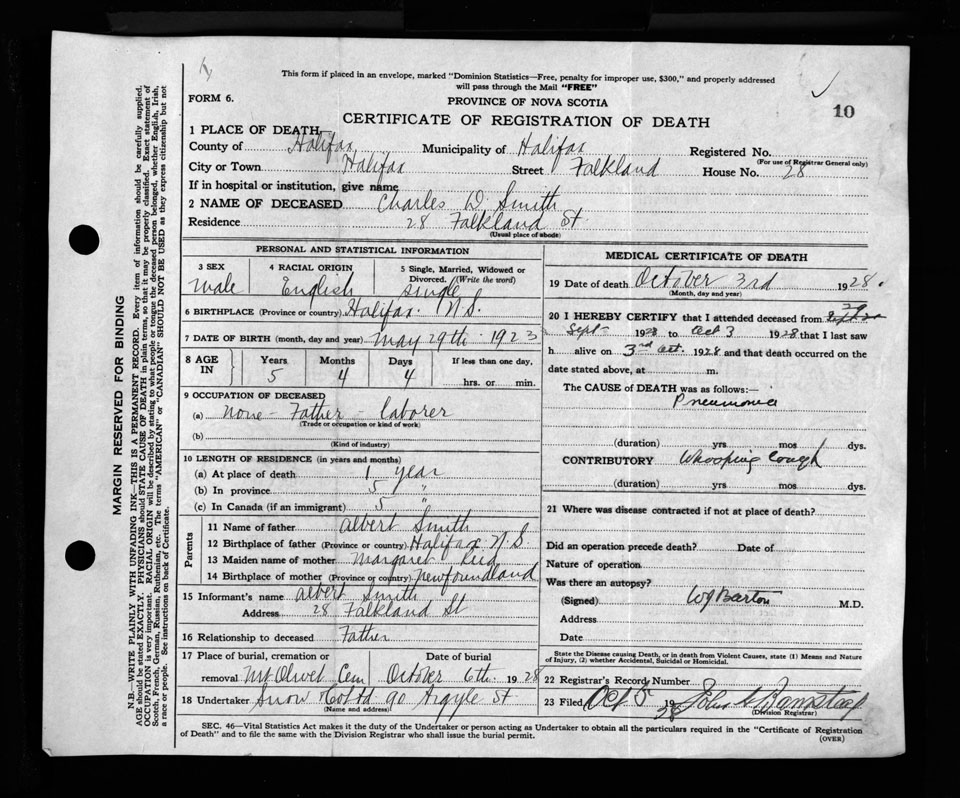 This form if placed in an envelope, marked "Dominion Statistics—Free, penalty for improper use, $300," and properly addressed
will pass through the Mail "FREE"
FORM 6.
PROVINCE OF NOVA SCOTIA
10
CERTIFICATE OF REGISTRATION OF DEATH
1 PLACE OF DEATH
County of Halifax Municipality of Halifax Registered No.
(For use of Registrar General only)
City or Town Halifax Street Falkland House No. 28
If in hospital or institution, give name
2 NAME OF DECEASED Charles W. Smith
Residence 28 Falkland St
(Usual place of abode)
PERSONAL AND STATISTICAL INFORMATION
3 SEX 4 RACIAL ORIGIN 5 Single, Married, Widowed or
Divorced. (Write the word)
Male English Single
6 BIRTHPLACE (Province or country) Halifax. N.S.
7 DATE OF BIRTH (month, day and year) May 29th 1923
8 AGE IN Years Months Days If less than one day,
5 4 4 hrs. or min.
9 OCCUPATION OF DECEASED
(a) None - Father - laborer
(Trade or occupation or kind of work)
(b)
(Kind of industry)
10 LENGTH OF RESIDENCE (in years and months)
(a) At place of death 1 year
(b) In province 5 "
(c) In Canada (if an immigrant) 5 "
Parents
11 Name of father Albert Smith
12 Birthplace of father (Province or country) Halifax N.S.
13 Maiden name of mother Margaret
14 Birthplace of mother (Province or country) Newfoundland
15 Informant's name Albert Smith
Address 28 Falkland St
16 Relationship to deceased Father
17 Place of burial, cremation or Date of burial
removal Mt Olivet Cem October 6th. 1928
18 Undertaker Snow Co Ltd 90 Argyle St
(Name and address)
MEDICAL CERTIFICATE OF DEATH
19 Date of death October 3rd 1928.
(Month, day and year)
20 I HEREBY CERTIFY that I attended deceased from 29
Sept 1928 to Oct 3 1928 that I last saw
h alive on 3rd Oct. 1928 and that death occurred on the
date stated above, at m.
The CAUSE of DEATH was as follows:—
Pneumonia
(duration) yrs mos dys.
CONTRIBUTORY Whooping Cough
(duration) yrs mos dys.
21 Where was disease contracted if not at place of death?
Did an operation precede death? Date of
Nature of operation
Was there an autopsy?
(Signed) W J Barton M.D.
Address
Date
State the Disease causing Death, or in death from Violent Causes, state (1) Means and Nature
of Injury, (2) whether Accidental, Suicidal or Homicidal.
22 Registrar's Record Number
23 Filed Oct 5 1928 John
(Division Registrar)
SEC. 46—Vital Statistics Act makes it the duty of the Undertaker or person acting as Undertaker to obtain all the particulars required in the "Certificate of Registration
of Death" and to file the same with the Division Registrar who shall issue the burial permit.
(OVER)
MARGIN RESERVED FOR BINDING
N.B.—WRITE PLAINLY WITH UNFADING INK—THIS IS A PERMANENT RECORD. Every item of information should be carefully supplied.
AGE should be stated EXACTLY. PHYSICIANS should STATE CAUSE OF DEATH in plain terms, so that it may be properly classified. Exact statement of
OCCUPATION is very important. RACIAL ORIGIN will be described by stating to what people or tongue the deceased person belonged, whether English, Irish,
Scotch, French, German, Russian, Ruthenian, etc. The terms "AMERICAN" or "CANADIAN" SHOULD NOT BE USED as they express citizenship but not
a race or people. See instructions on back of Certificate.